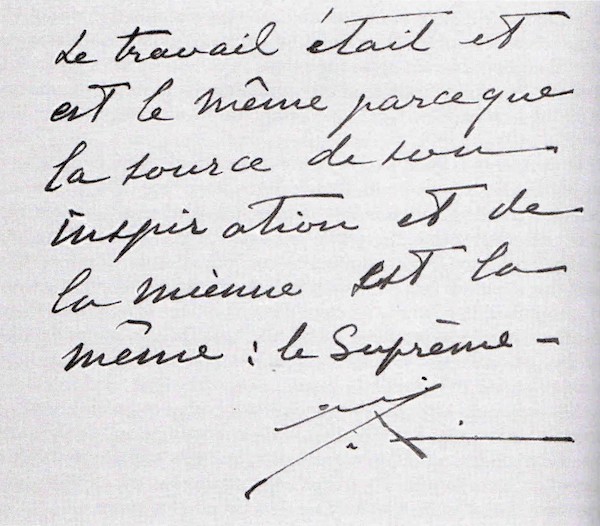 Le travail était et
est le même parceque
la source de son
inspiration et de
la mienne est la
même : le Suprème -